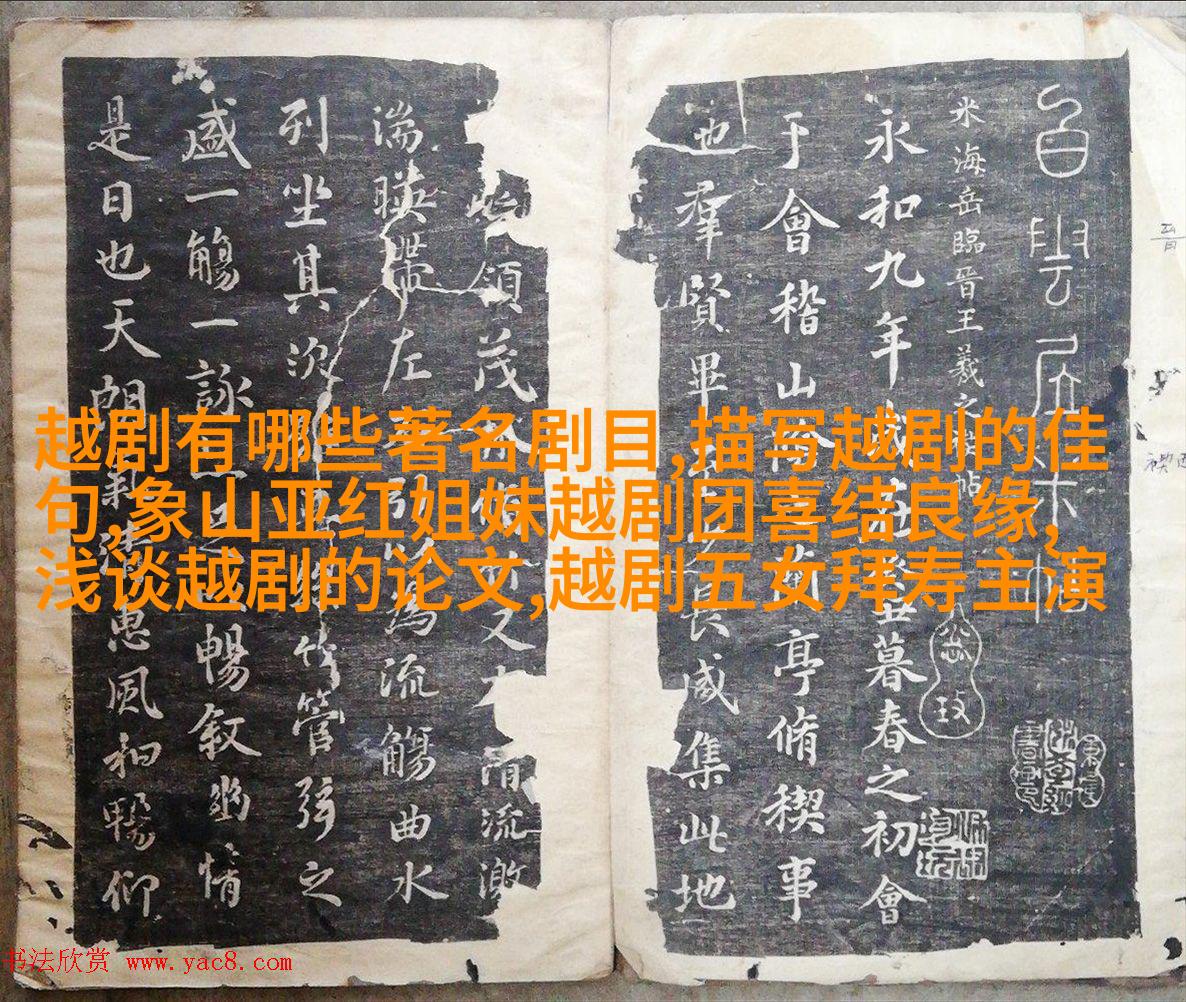 越剧有哪些著名剧目,描写越剧的佳
句,象山亚红姐妹越剧团喜结良缘,
浅谈越剧的论文,越剧五女拜寿主演
米海岳臨晉王羲之禊帖
永和九年歲在癸丑暮春之初會
于會稽山陰之蘭亭脩禊事
也羣賢畢至少長咸集此地
領茂林脩竹又有清流激
湍暎帶左右引以為流觴曲水
列坐其次雖無絲竹管弦之
盛一觴一詠亦足以暢敘幽情
是日也天朗氣清惠風和暢仰
书法欣赏 www.yac8.com